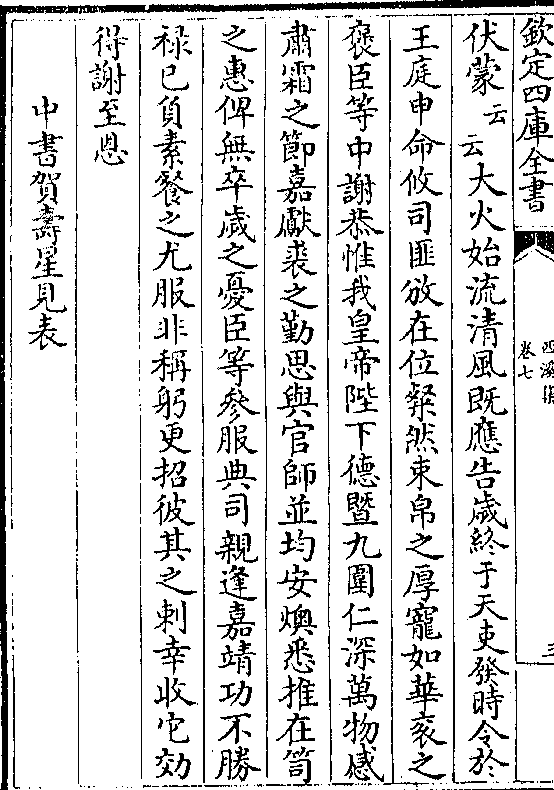 欽定四庫全書
卷七
伏蒙云云大火始流清風既應告歲終于天吏發時令於
王庭申命攸司匪放在位粲然束帛之厚寵如華衮之
褒臣等中謝恭惟我皇帝陛下德暨九圍仁深萬物感
肅霜之節嘉獻裘之勤思與官師並均安燠悉推在笥
之惠俾無卒歲之憂臣等參服典司親逢嘉靖功不勝
禄已負素餐之尤服非稱躬更招彼其之刺幸收它効
得謝至恩
中書賀壽星見表